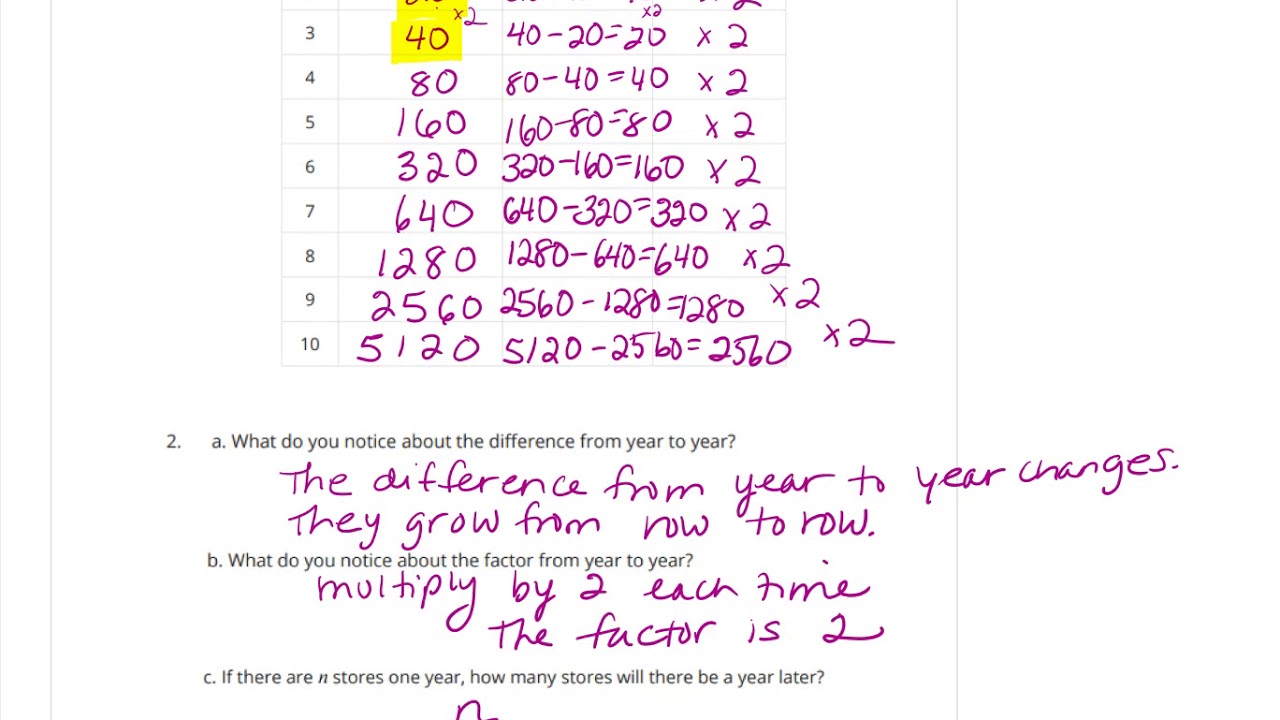 ×2 ×2
3 40 40-20=20 × 2
4 80 80-40=40 × 2
5 160 160-80=80 × 2
6 320 320-160=160 × 2
7 640 640-320=320 × 2
8 1280 1280-640=640 ×2
9 2560 2560-1280=1280 ×2
10 5120 5120-2560=2560 ×2
2. a. What do you notice about the difference from year to year?
The difference from year to year changes.
They grow from row to row.
b. What do you notice about the factor from year to year?
multiply by 2 each time
The factor is 2
c. If there are n stores one year, how many stores will there be a year later?